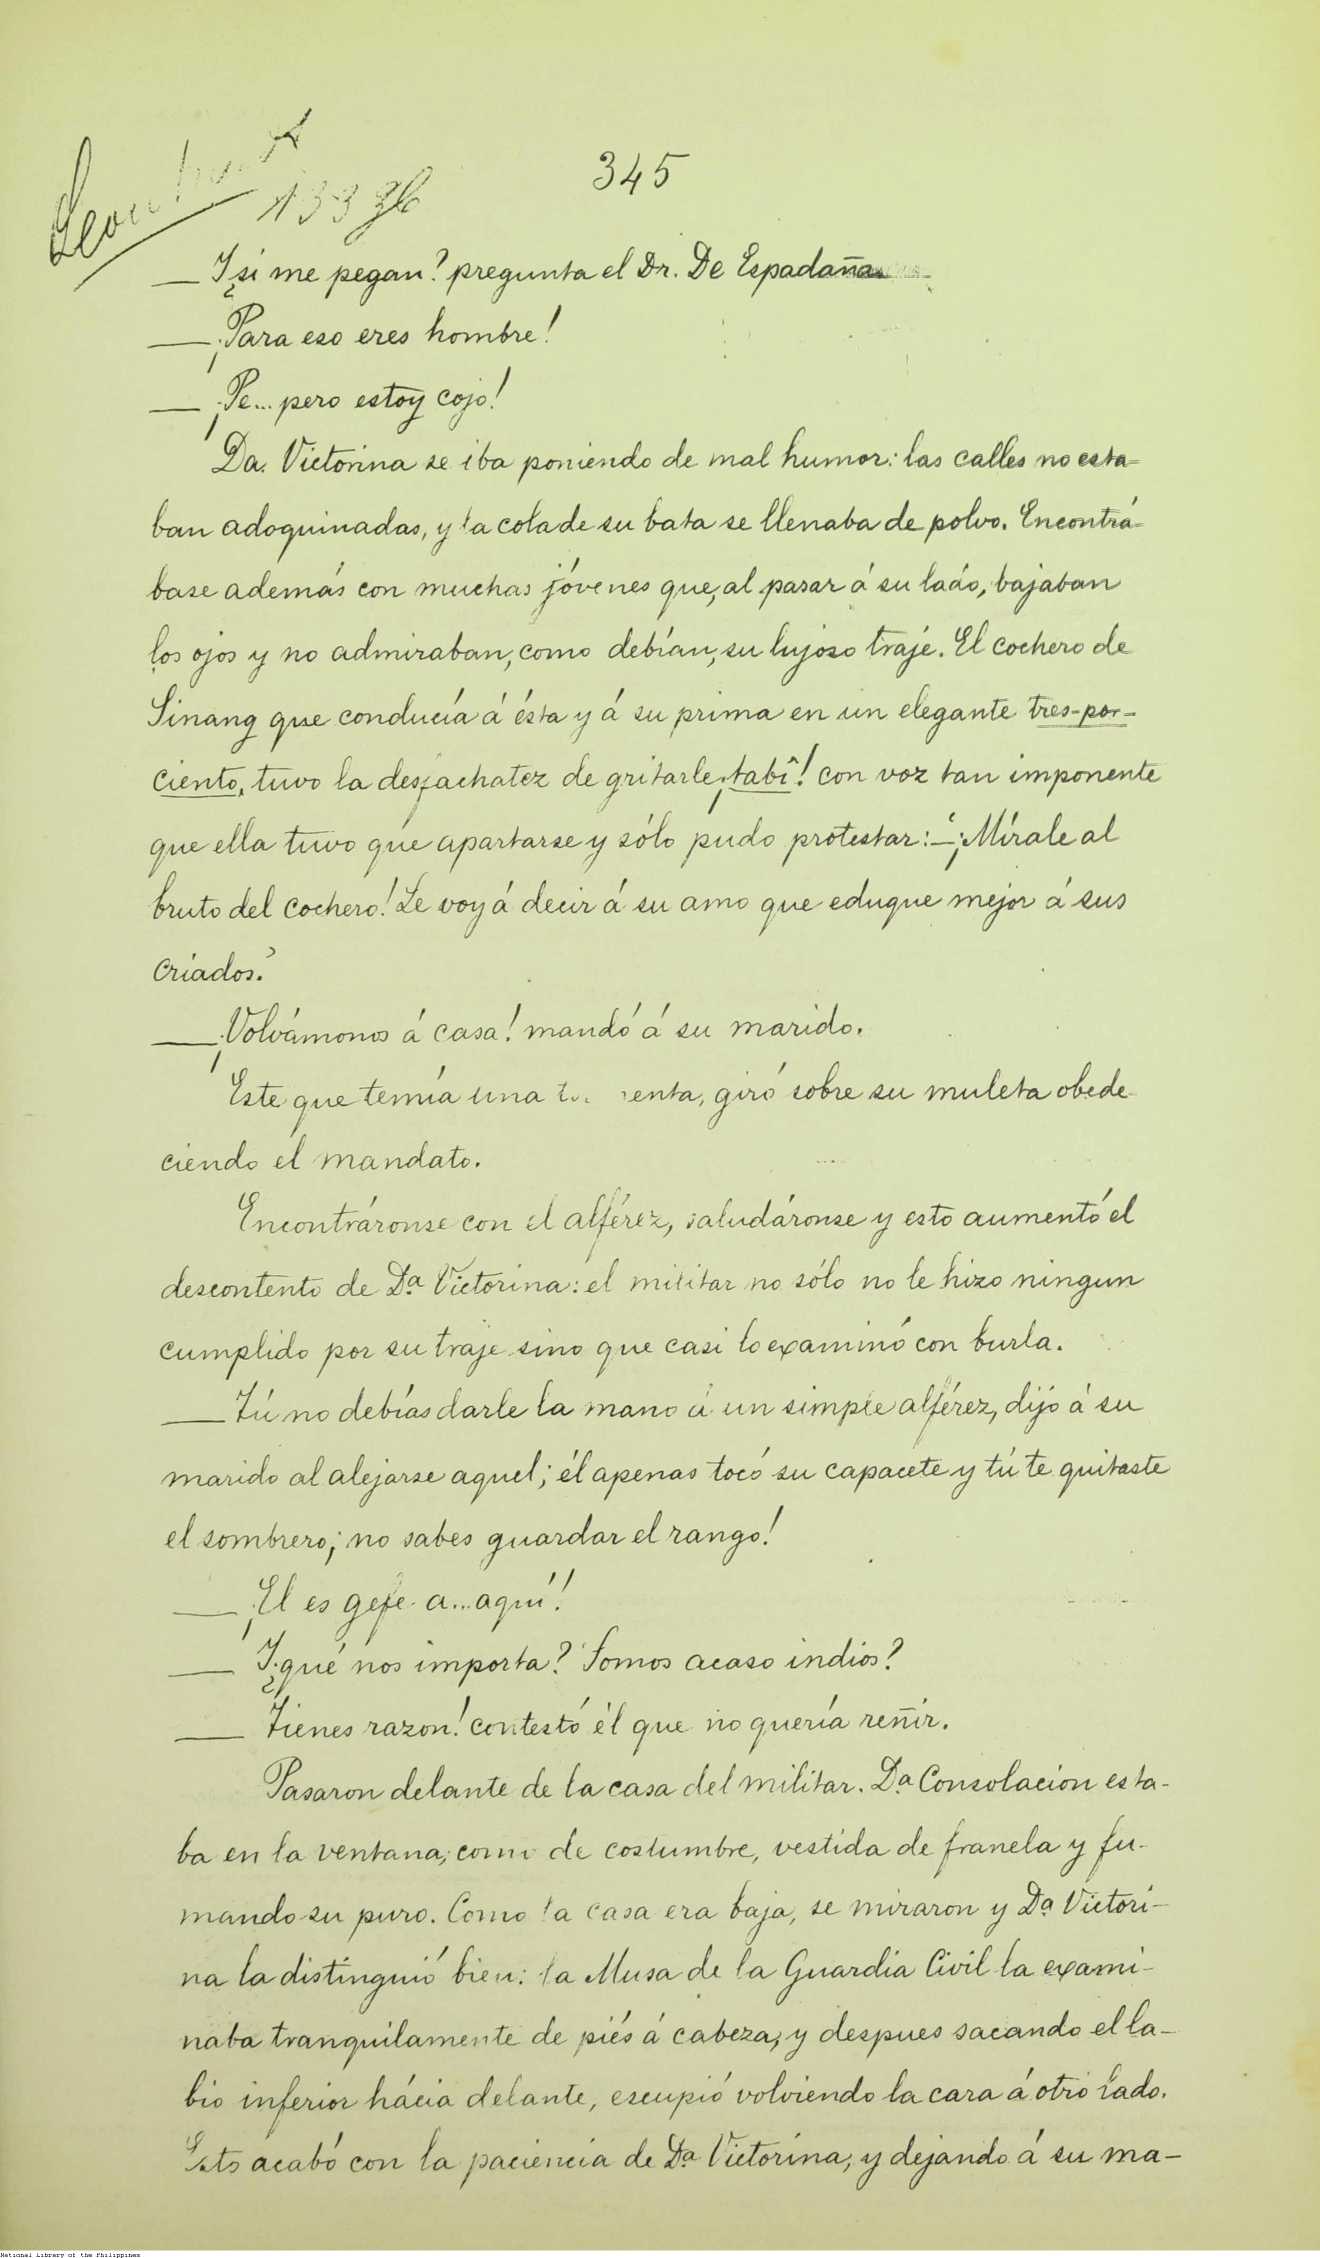 345
13336
— Y ¿si me pegan? pregunta el Dr. De Espadaña
— ¡Para eso eres hombre!
— ¡Pe... pero estoy cojo!
Da. Victorina se iba poniendo de mal humor: las calles no esta=
ban adoquinadas, y la cola de su bata se llenaba de polvo. Encontrá=
base además con muchas jóvenes que, al pasar á su lado, bajaban
los ojos y no admiraban, como debían, su lujoso traje. El cochero de
Sinang que conducía á ésta y á su prima en un elegante tres-por-
ciento, tuvo la desfachatez de gritarle ¡tabî! con voz tan imponente
que ella tuvo que apartarse y sólo pudo protestar: —‘¡Mírale al
bruto del cochero! Le voy á decir á su amo que eduque mejor á sus
criados.’
— ¡Volvámonos á casa! mandó á su marido.
Este que temía una giró sobre su muleta obede-
ciendo el mandato.
Encontráronse con el alférez, saludáronse y esto aumentó el
descontento de Da. Victorina: el militar no sólo no le hizo ningun
cumplido por su traje sino que casi lo examinó con burla.
— Tú no debías darle la mano á un simple alférez, dijo á su
marido al alejarse aquel; él apenas tocó su capacete y tú te quitaste
el sombrero; no sabes guardar el rango!
— ¡El es gefe a... aquí!
— Y ¿qué nos importa? Somos acaso indios?
— Tienes razon! contestó él que no quería reñir.
Pasaron delante de la casa del militar. Da. Consolacion esta-
ba en la ventana, como de costumbre, vestida de franela y fu-
mando su puro. Como la casa era baja, se miraron y Da. Victori-
na la distinguió bien: la Musa de la Guardia Civil la exami-
naba tranquilamente de piés á cabeza, y despues sacando el la-
bio inferior hácia delante, escupió volviendo la cara á otro lado.
Esto acabó con la paciencia de Da. Victorina, y dejando á su ma-
National Library of the Philippines